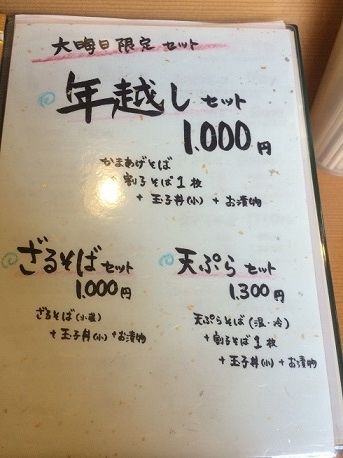 大晦日限定セット
年越しセット
1,000円
かまあげそば
割子そば1枚
+玉子丼(小)+お漬物
ざるそばセット
1,000円
ざるそば(小盛)
+玉子丼(小)+お漬物
天ぷらセット
1,300円
天ぷらそば(温・冷)
+割子そば1枚
+玉子丼(小)+お漬物